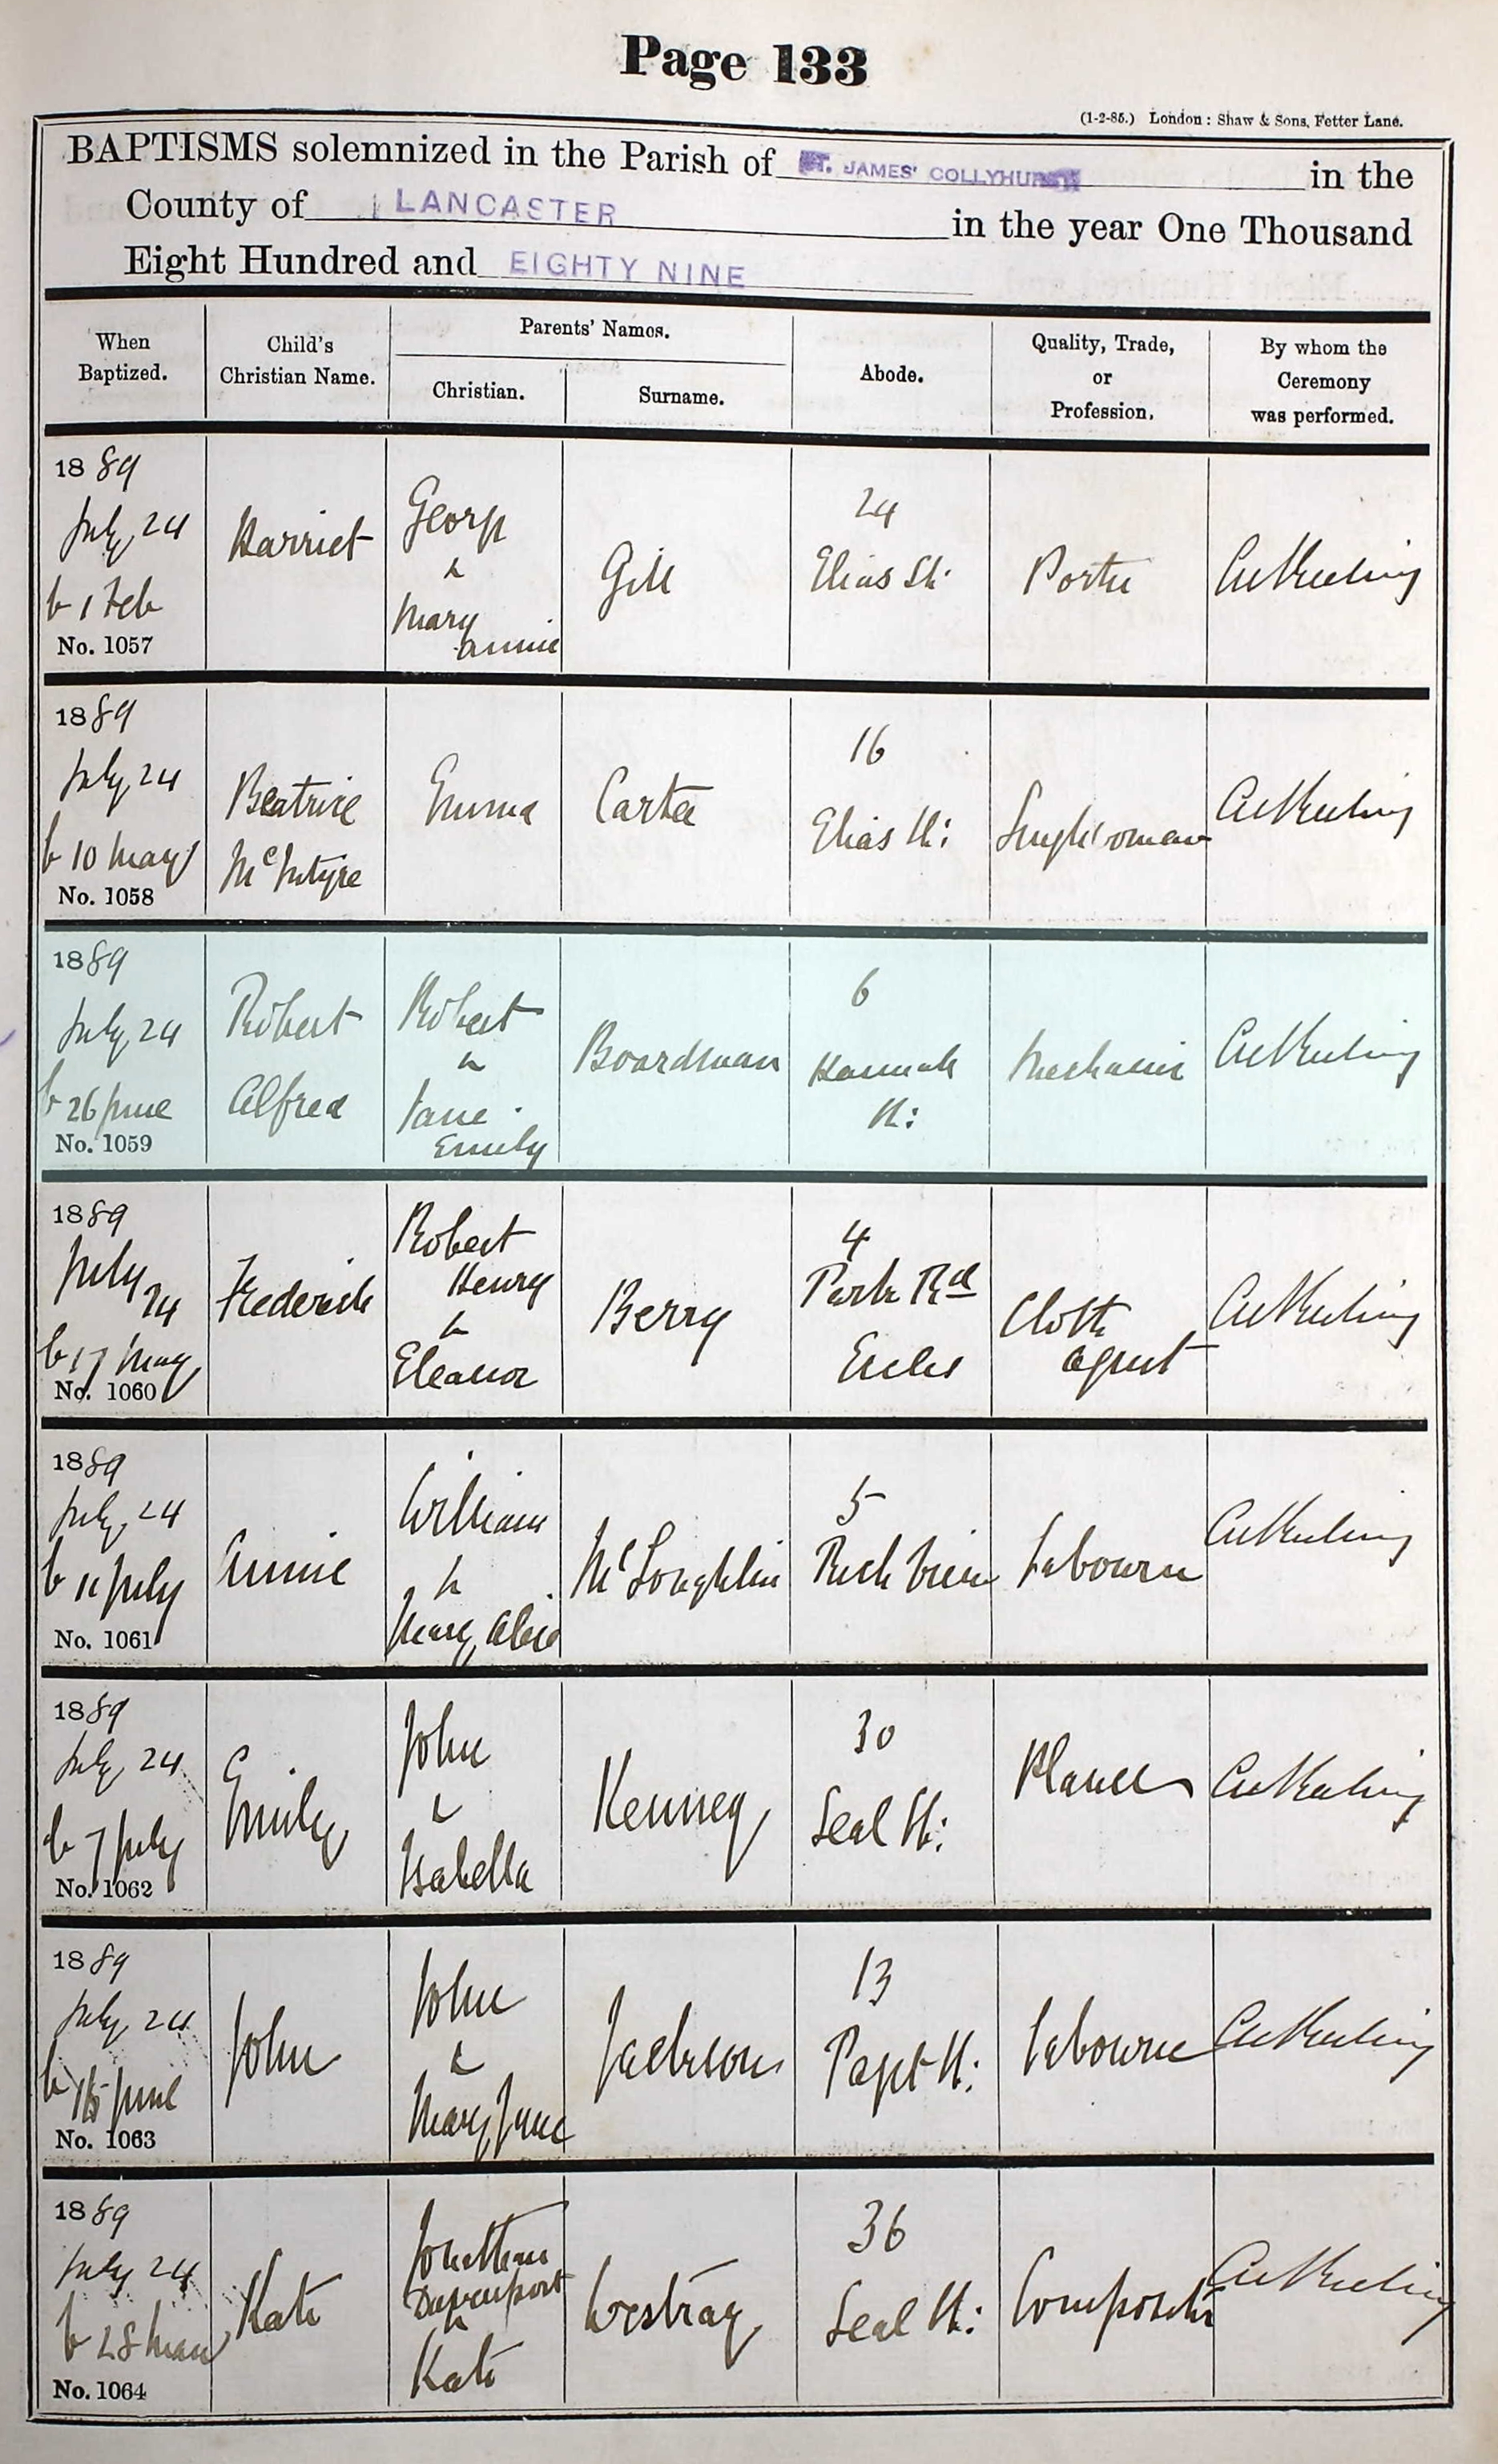 Page 133
(1-2-85.) London: Shaw & Sons, Fetter Lane.
BAPTISMS solemnized in the Parish of ST. JAMES' COLLYHURST in the
County of LANCASTER in the year One Thousand
Eight Hundred and EIGHTY NINE
When Baptized.
Child's Christian Name.
Parents' Names.
Christian.
Surname.
Abode.
Quality, Trade, or Profession.
By whom the Ceremony was performed.
1889
July 24
b 1 Feb
No. 1057
Harriet
George
&
Mary
Annie
Gill
24
Elias St:
Porter
1889
July 24
b 10 May
No. 1058
Beatrice
McIntyre
Emma
Carter
16
Elias St:
Singlewoman
1889
July 24
b 26 June
No. 1059
Robert
Alfred
Robert
&
Jane
Emily
Boardman
6
Hannah
St:
Mechanic
1889
July
24
b 17 May
No. 1060
Frederick
Robert
Henry
&
Eleanor
Berry
4
Park Rd
Eccles
Cloth
Agent
1889
July 24
b 11 July
No. 1061
Annie
William
&
Mary Alice
McLoughlin
5
View
Labourer
1889
July 24
b 7 July
No. 1062
Emily
John
&
Isabella
Kenney
30
Seal St:
Planer
1889
July 24
b 15 June
No. 1063
John
John
&
Mary Jane
Jackson
13
St:
Labourer
1889
July 24
b 28 May
No. 1064
Kate
Jonathan
Davenport
&
Kate
Westray
36
Seal St:
Compositor